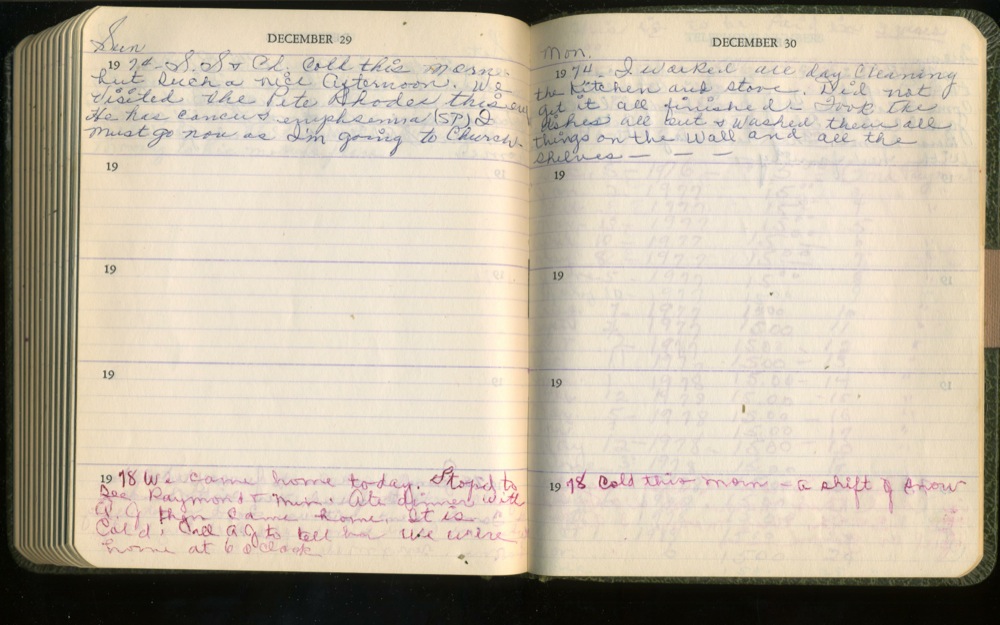 Sun
DECEMBER 29
1974 - S. S & Ch. Cold this morn
but such a nice afternoon. We
visited the Pete Rhodes this
He has cancer & emphsemia (SP) I
must go now as I'm going to Church.
19
19
19
1978 We came home today. Stoped to
see Raymond & Min. Ate dinner with
A. J then came home. It is
Cold, Call A J to tell we were
home at 6 o clock
Mon.
DECEMBER 30
1974 - I worked all day Cleaning
the Kitchen and stove. Did not
get it all finished. Took the
dishes all out & washed them all
things on the Wall and all the
shelves - - -
19
19
19
1978 Cold this morn - a skift of snow